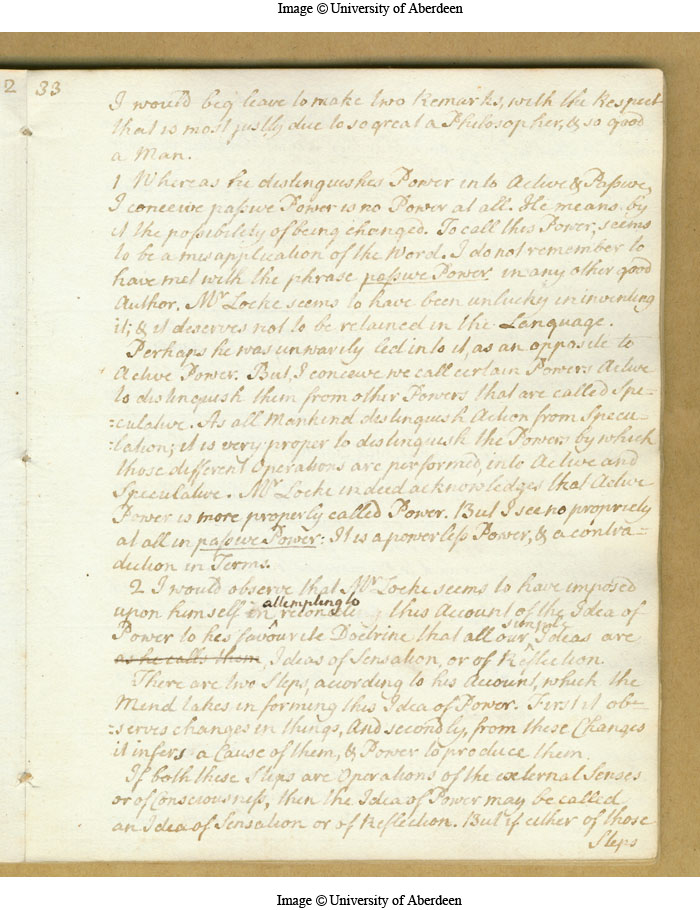 Image © University of Aberdeen
2 33
I would beg leave to make two Remarks, with the Respect
that is most justly due to so great a Philosopher, & so good
a Man.
1 Whereas he distinguishes Power into Active & Passive,
I conceive passive Power is no Power at all. He means by
it the possibility of being changed. To call this Power, seems
to be a misapplication of the Word. I do not remember to
have met with the phrase passive Power in any other good
Author. Mr Locke seems to have been unlucky in inventing
it; & it deserves not to be retained in the Language.
Perhaps he was unwarily led into it, as an opposite to
Active Power. But, I conceive we call certain Powers Active
to distinguish them from other Powers that are called Spe-
culative. As all Mankind destinguish Action from Specu-
:lation; it is very proper to distinguish the Powers by which
those different Operations are performed, into Active and
Speculative. Mr Locke indeed acknowledges that Active
Power is more properly called Power. But I see no propriety
at all in passive Power: It is a powerless Power, & a contra-
diction in Terms.
2 I would observe that Mr Locke seems to have imposed
attempting to
upon himself in this Account of the Idea of
simple
Power to his favourite Doctrine that all our Ideas are
as he calls them, Ideas of Sensation, or of Reflection
There are two Steps, according to his Account, which the
Mind takes in forming this Idea of Power. First it ob-
:serves changes in things, And secondly, from these Changes
it infers a Cause of them, & Power to produce them.
If both these Steps are Operations of the external Senses
or of Consciousness, then the Idea of Power may be called
an Idea of Sensation or of Reflection. But if either of those
Steps
Image © University of Aberdeen